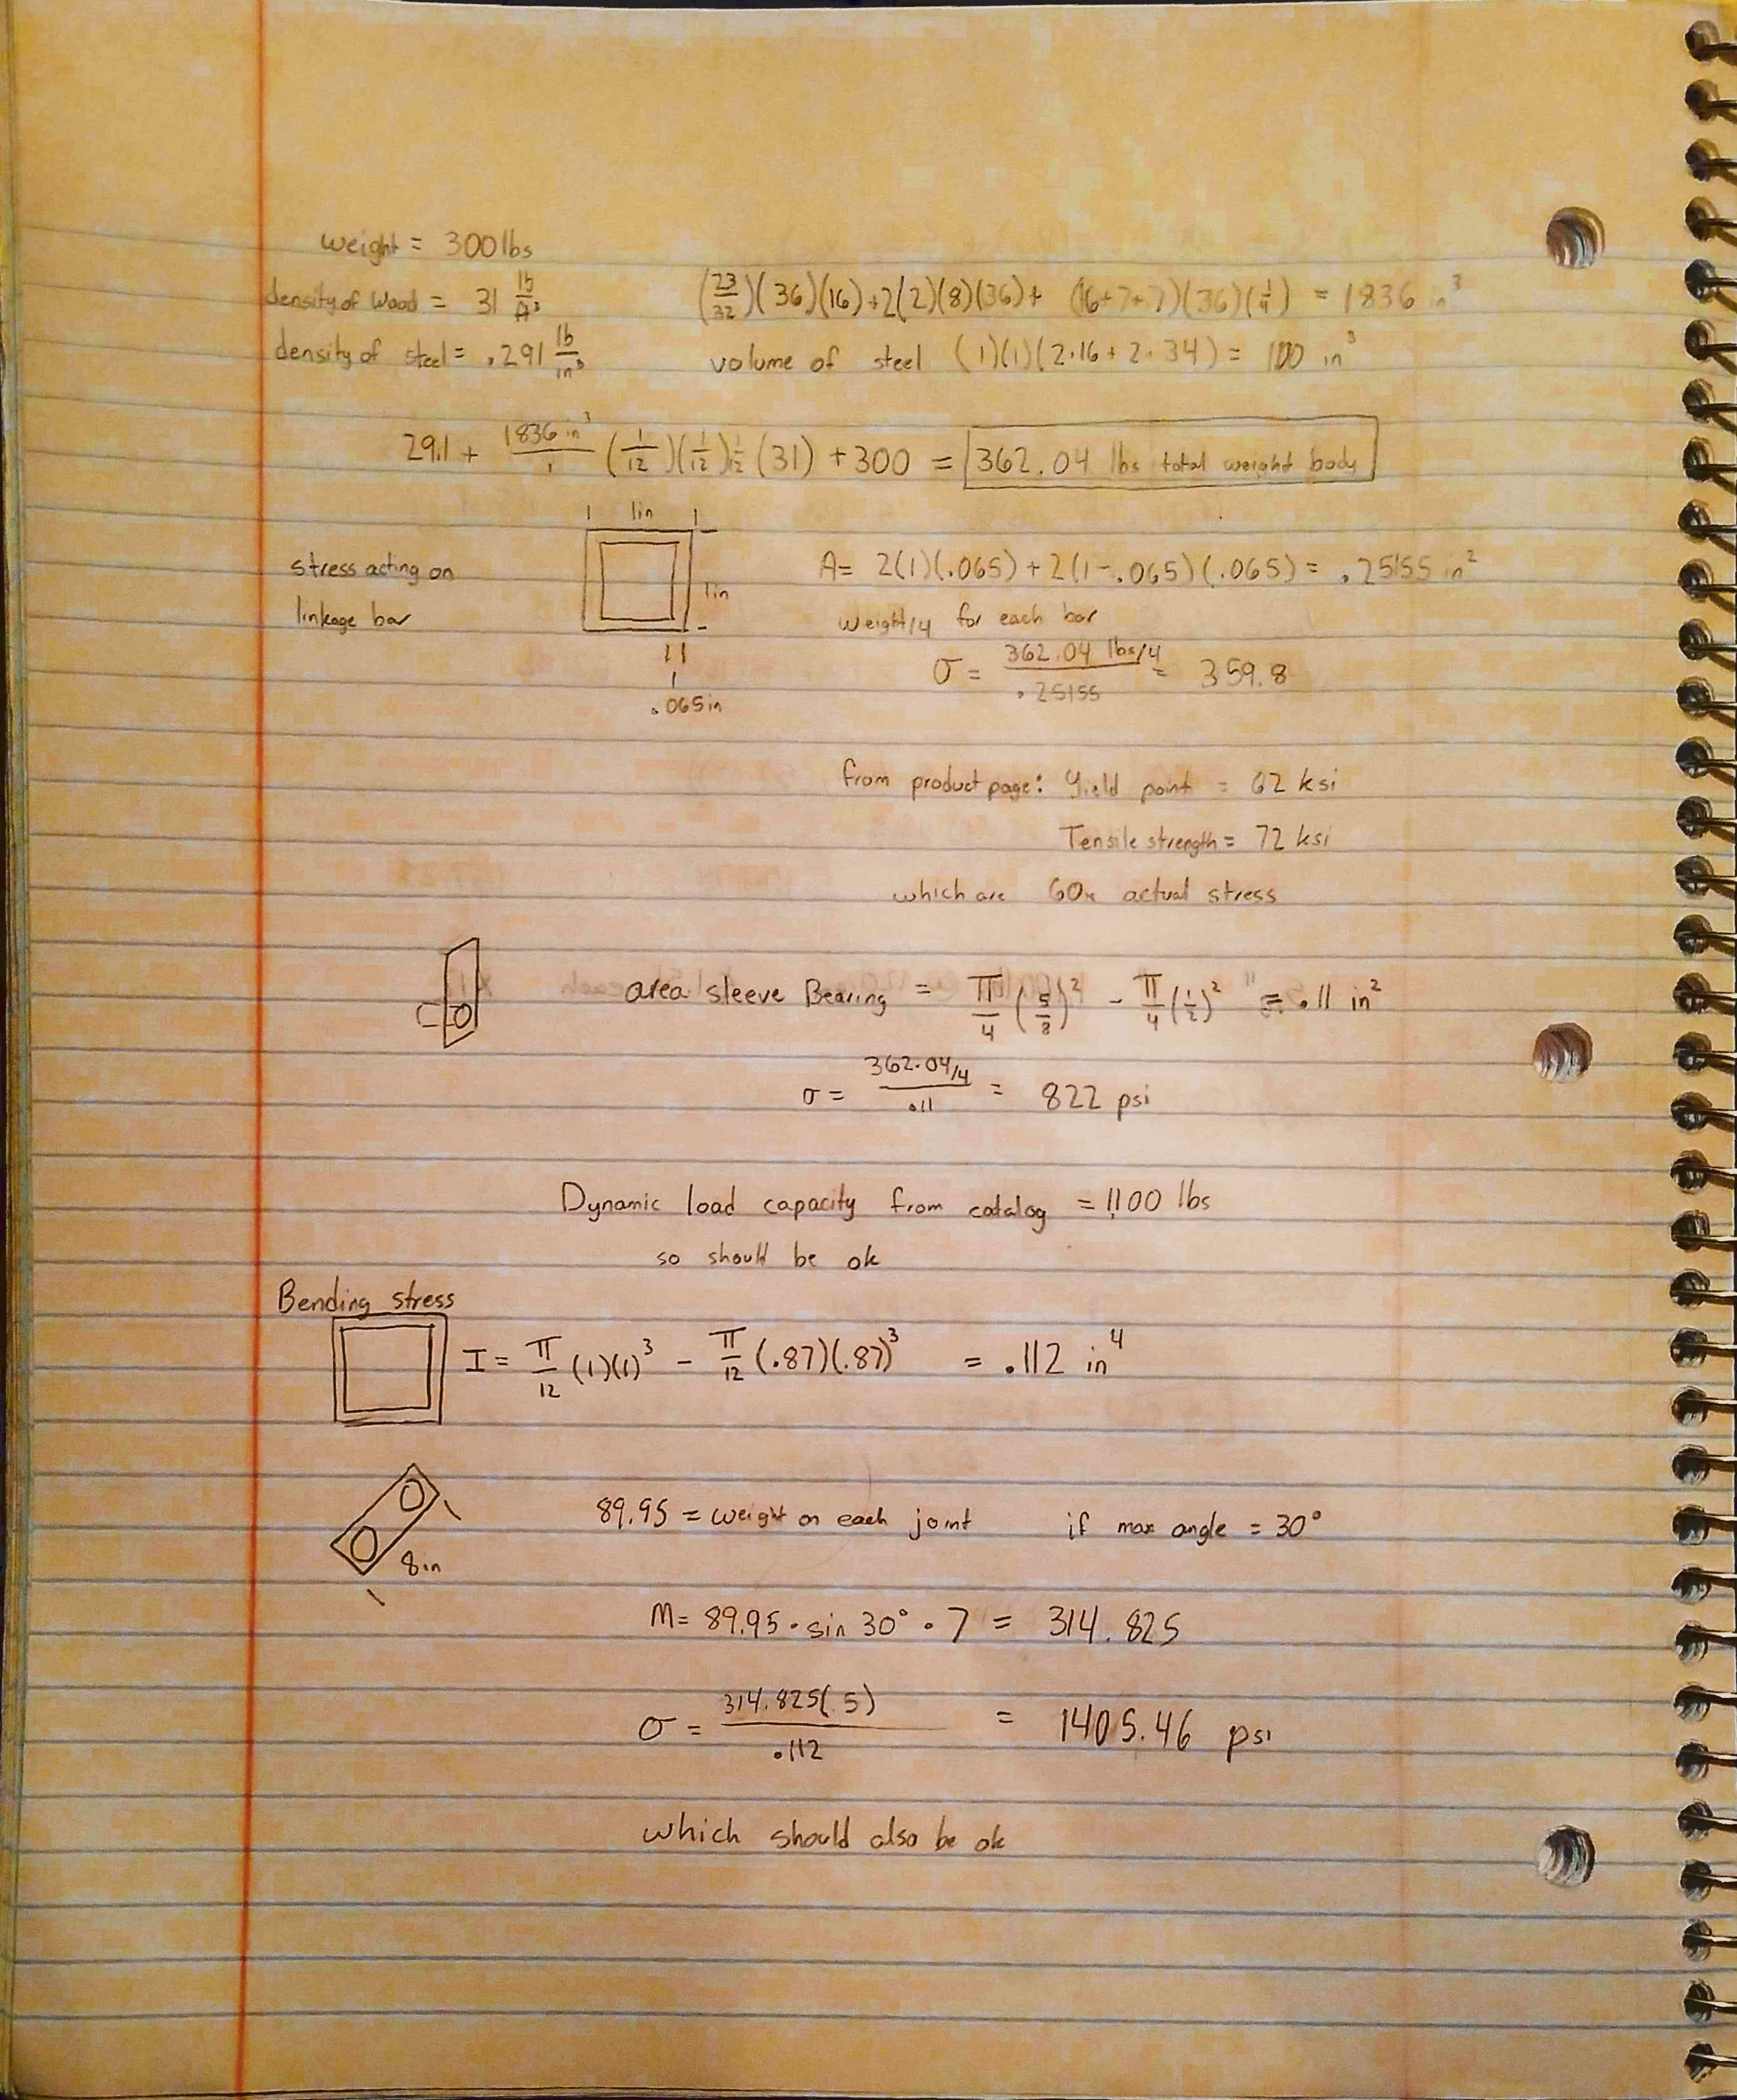 weight = 300 lbs
density of Wood = 31 lb/ft³ (23/32)(36)(16)+2(2)(8)(36)+ (16+7+7)(36)(1/4) = 1836 in³
density of steel = .291 lb/in³ volume of steel (1)(1)(2·16 + 2·34) = 100 in³
29.1 + 1836 in³/1 (1/12)(1/12)1/12 (31) + 300 = 362.04 lbs total weight body
1in
stress acting on A= 2(1)(.065) + 2(1-.065)(.065) = .25155 in²
1in
linkage bar weight/4 for each bar
σ = 362.04 lbs/4 / .25155 = 359.8
.065in
from product page: Yield point = 62 ksi
Tensile strength = 72 ksi
which are 60x actual stress
area sleeve Bearing = π/4 (5/8)² - π/4 (1/2)² = .11 in²
σ = 362.04/4 / .11 = 822 psi
Dynamic load capacity from catalog = 1,100 lbs
so should be ok
Bending stress
I = π/12 (1)(1)³ - π/12 (.87)(.87)³ = .112 in⁴
89.95 = weight on each joint if max angle = 30°
8in
M= 89.95 · sin 30° · 7 = 314.825
σ = 314.825(.5) / .112 = 1405.46 psi
which should also be ok